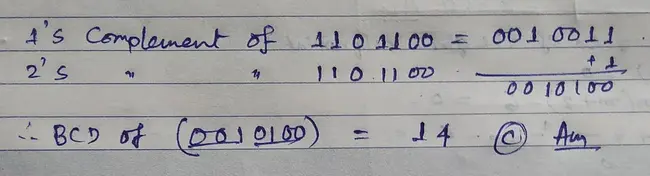 1's Complement of 1101100 = 0010011
2's " " 1101100 +1
0010100
∴ BCD of (0010100) = 14 Ⓒ Ans